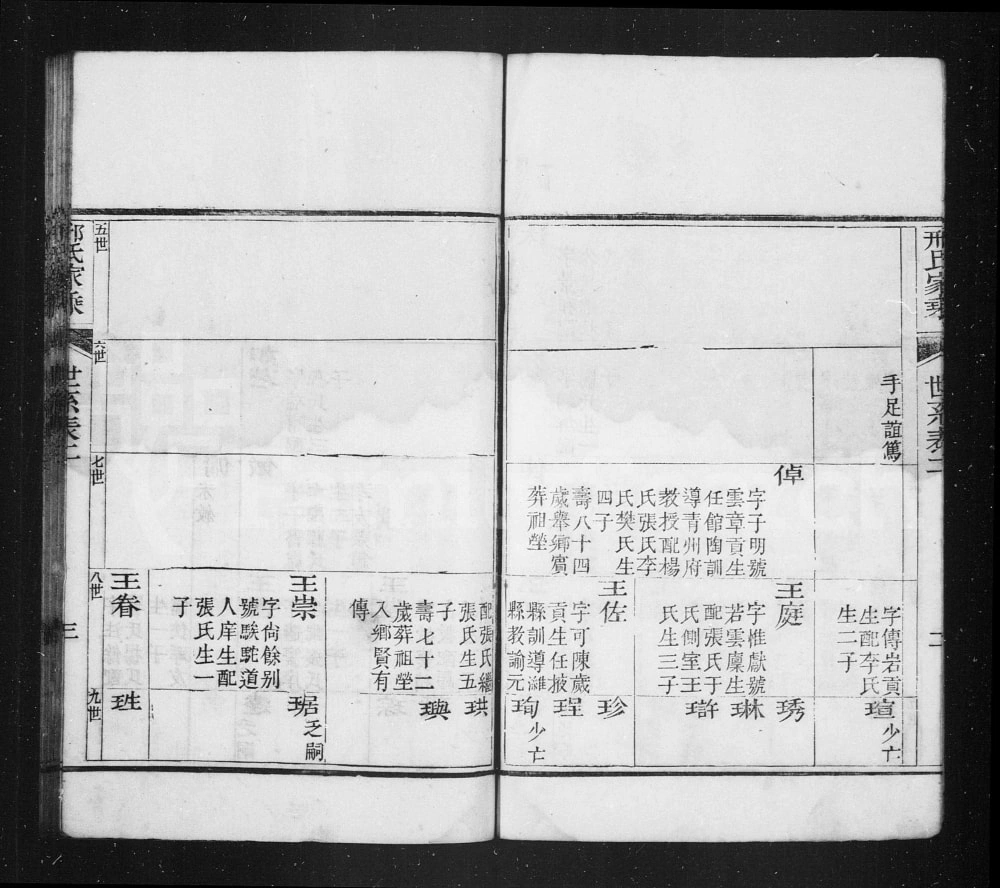 邢氏家乘
世系表二
二
手足誼篤
字傳岩貢
生配李氏
生二子
瑄少亡
倬
字子明號
雲章貢生
任館陶訓
導青州府
教授配楊
氏張氏李
氏樊氏生
四子
壽八十四
歲舉鄉賓
葬祖塋
王庭
字惟獻號
若雲廩生
配張氏于
氏側室王
氏生三子
琇
琳
王佐
字可陳歲
貢生任掖
縣訓導濰
縣教諭元
珍
珵
珣少亡
配張氏繼
張氏生五
子
壽七十二
歲葬祖塋
入鄉賢有
傳
珙
璵
王崇
字尙餘别
號駿駝道
人庠生配
張氏生一
子
琚之嗣
王眷
五世
六世
七世
八世
九世
邢氏家乘
世系表二
三